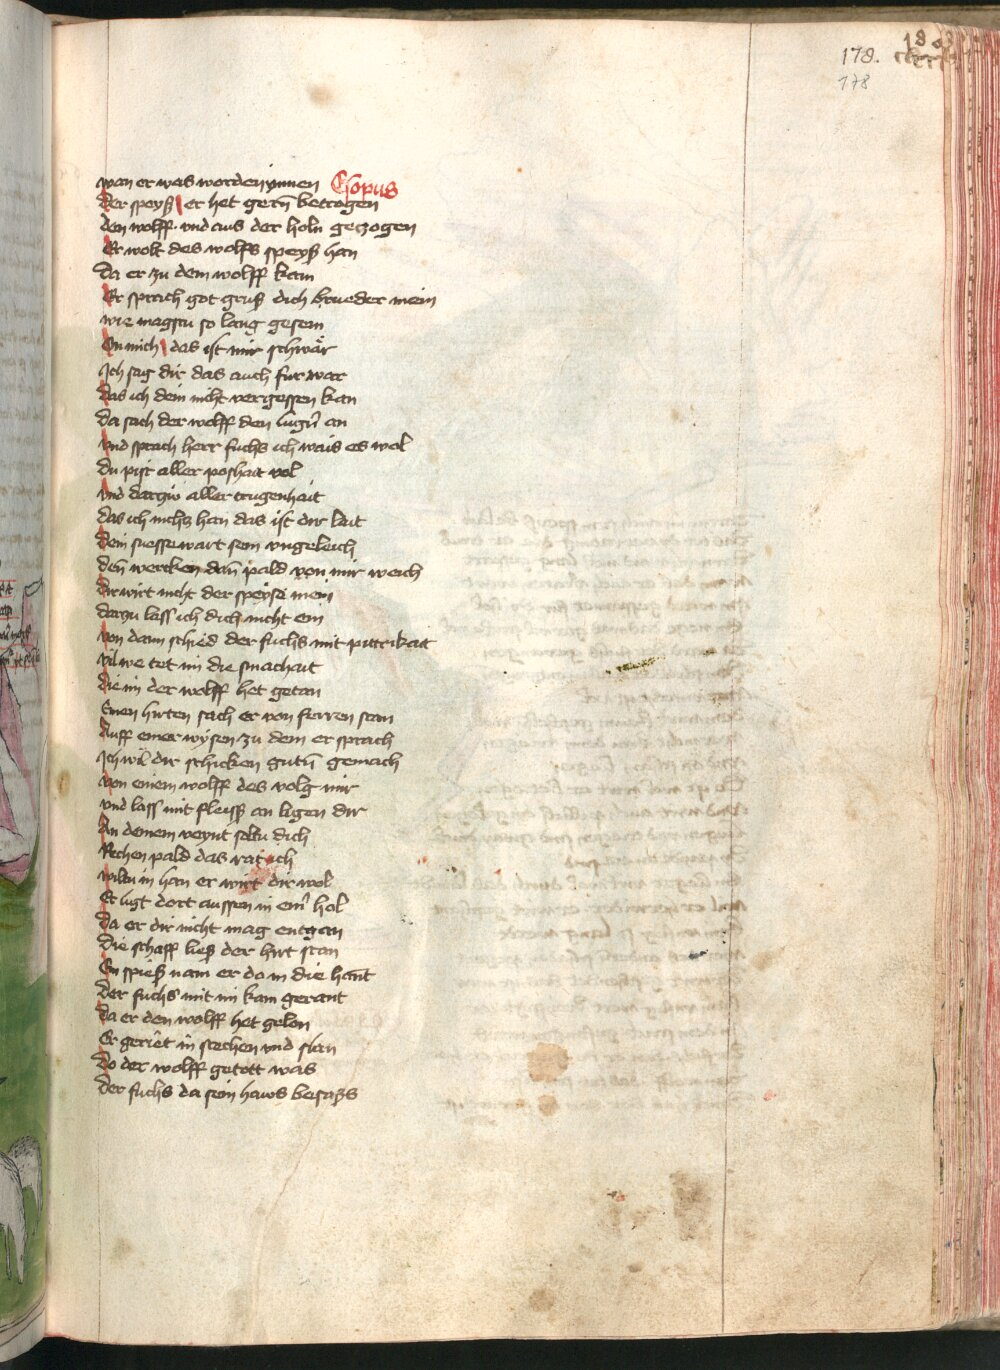 178.
178
wan er was worden ynnen Esopus
Der speyß er het gern̄ betrogen
den wolff. vnd aus der holn gezogen
Er wolt des wolffs speyß han
Da er zu dem wolff kam
Er sprach got gruß dich brueder mein
wie magstu so lang gesein
On mich das ist mir schwär
Ich sag dir das auch fur war
Das ich dein nicht vergessen kan
Da sach der wolff den lugn̄ an
vnd sprach herr fuchs ich wais es wol
Du pist aller poshait vol
vnd darzu aller trugenhait
Das ich nichs han das ist dir lait
Dein suesse wart sein vngeleich
den̄ wercken dan̄ pald von mir weich
Dir wirt nicht der speyse mein
Darzu lass ich dich nicht ein
von dann schied der fuchs mit pittrikait
vil we tet im die smachait
Die im der wolff het getan
Einen hirten sach er von ferren stan
Auff einer wysen zu dem er sprach
Ich wil dir schicken gutn̄ gemach
von einem wolff des volg mir
vnd lass mit fleiss an ligen dir
An deinem veynt soltu dich
Rechen pald das rat ich
wiltu in han er wirt dir wol
Er ligt dort aussen in eim̄ hol
Da er dir nicht mag entgan
Die schaff ließ der hirt stan
Ein spieß nam er do in die hant
Der fuchs mit im kam gerant
Da er den wolff het gelon
Er geriet in stechen vnd slan
Do der wolff getött was
Der fuchs da sein haws besass